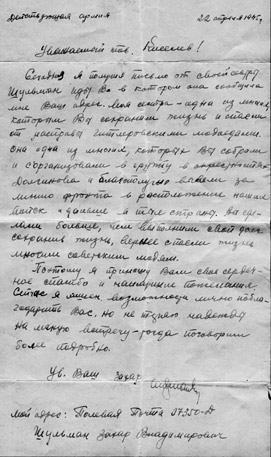 Действующая армия 22 апреля 1945 г.
Уважаемый тов. Киселев!
Сегодня я получил письмо от своей сестры
Шульман Иды Вл в котором она сообщила
мне Ваш адрес. Моя сестра - одна из многих,
которым Вы сохранили жизнь и спасли
от расправы гитлеровскими людоедами.
Она одна из многих, которых Вы собрали
и сорганизовали в группу в окрестностях
Долгиново и благополучно вывели за
линию фронта в расположение наших
войск и дальше в тыл страны. Вы сде-
лали больше, чем выполнили свой долг
сохранив жизнь, вернее спасли жизнь
многим советским людям.
Поэтому я приношу Вам свое сердеч-
ное спасибо и наилучшие пожелания.
Сейчас я лишен возможности лично побла-
годарить Вас. Но не теряю надежды
на личную встречу - тогда поговорим
более подробно.
Ув. Ваш Захар Шульман
Мой адрес: Полевая Почта 27350-Д
Шульман Захар Владимирович